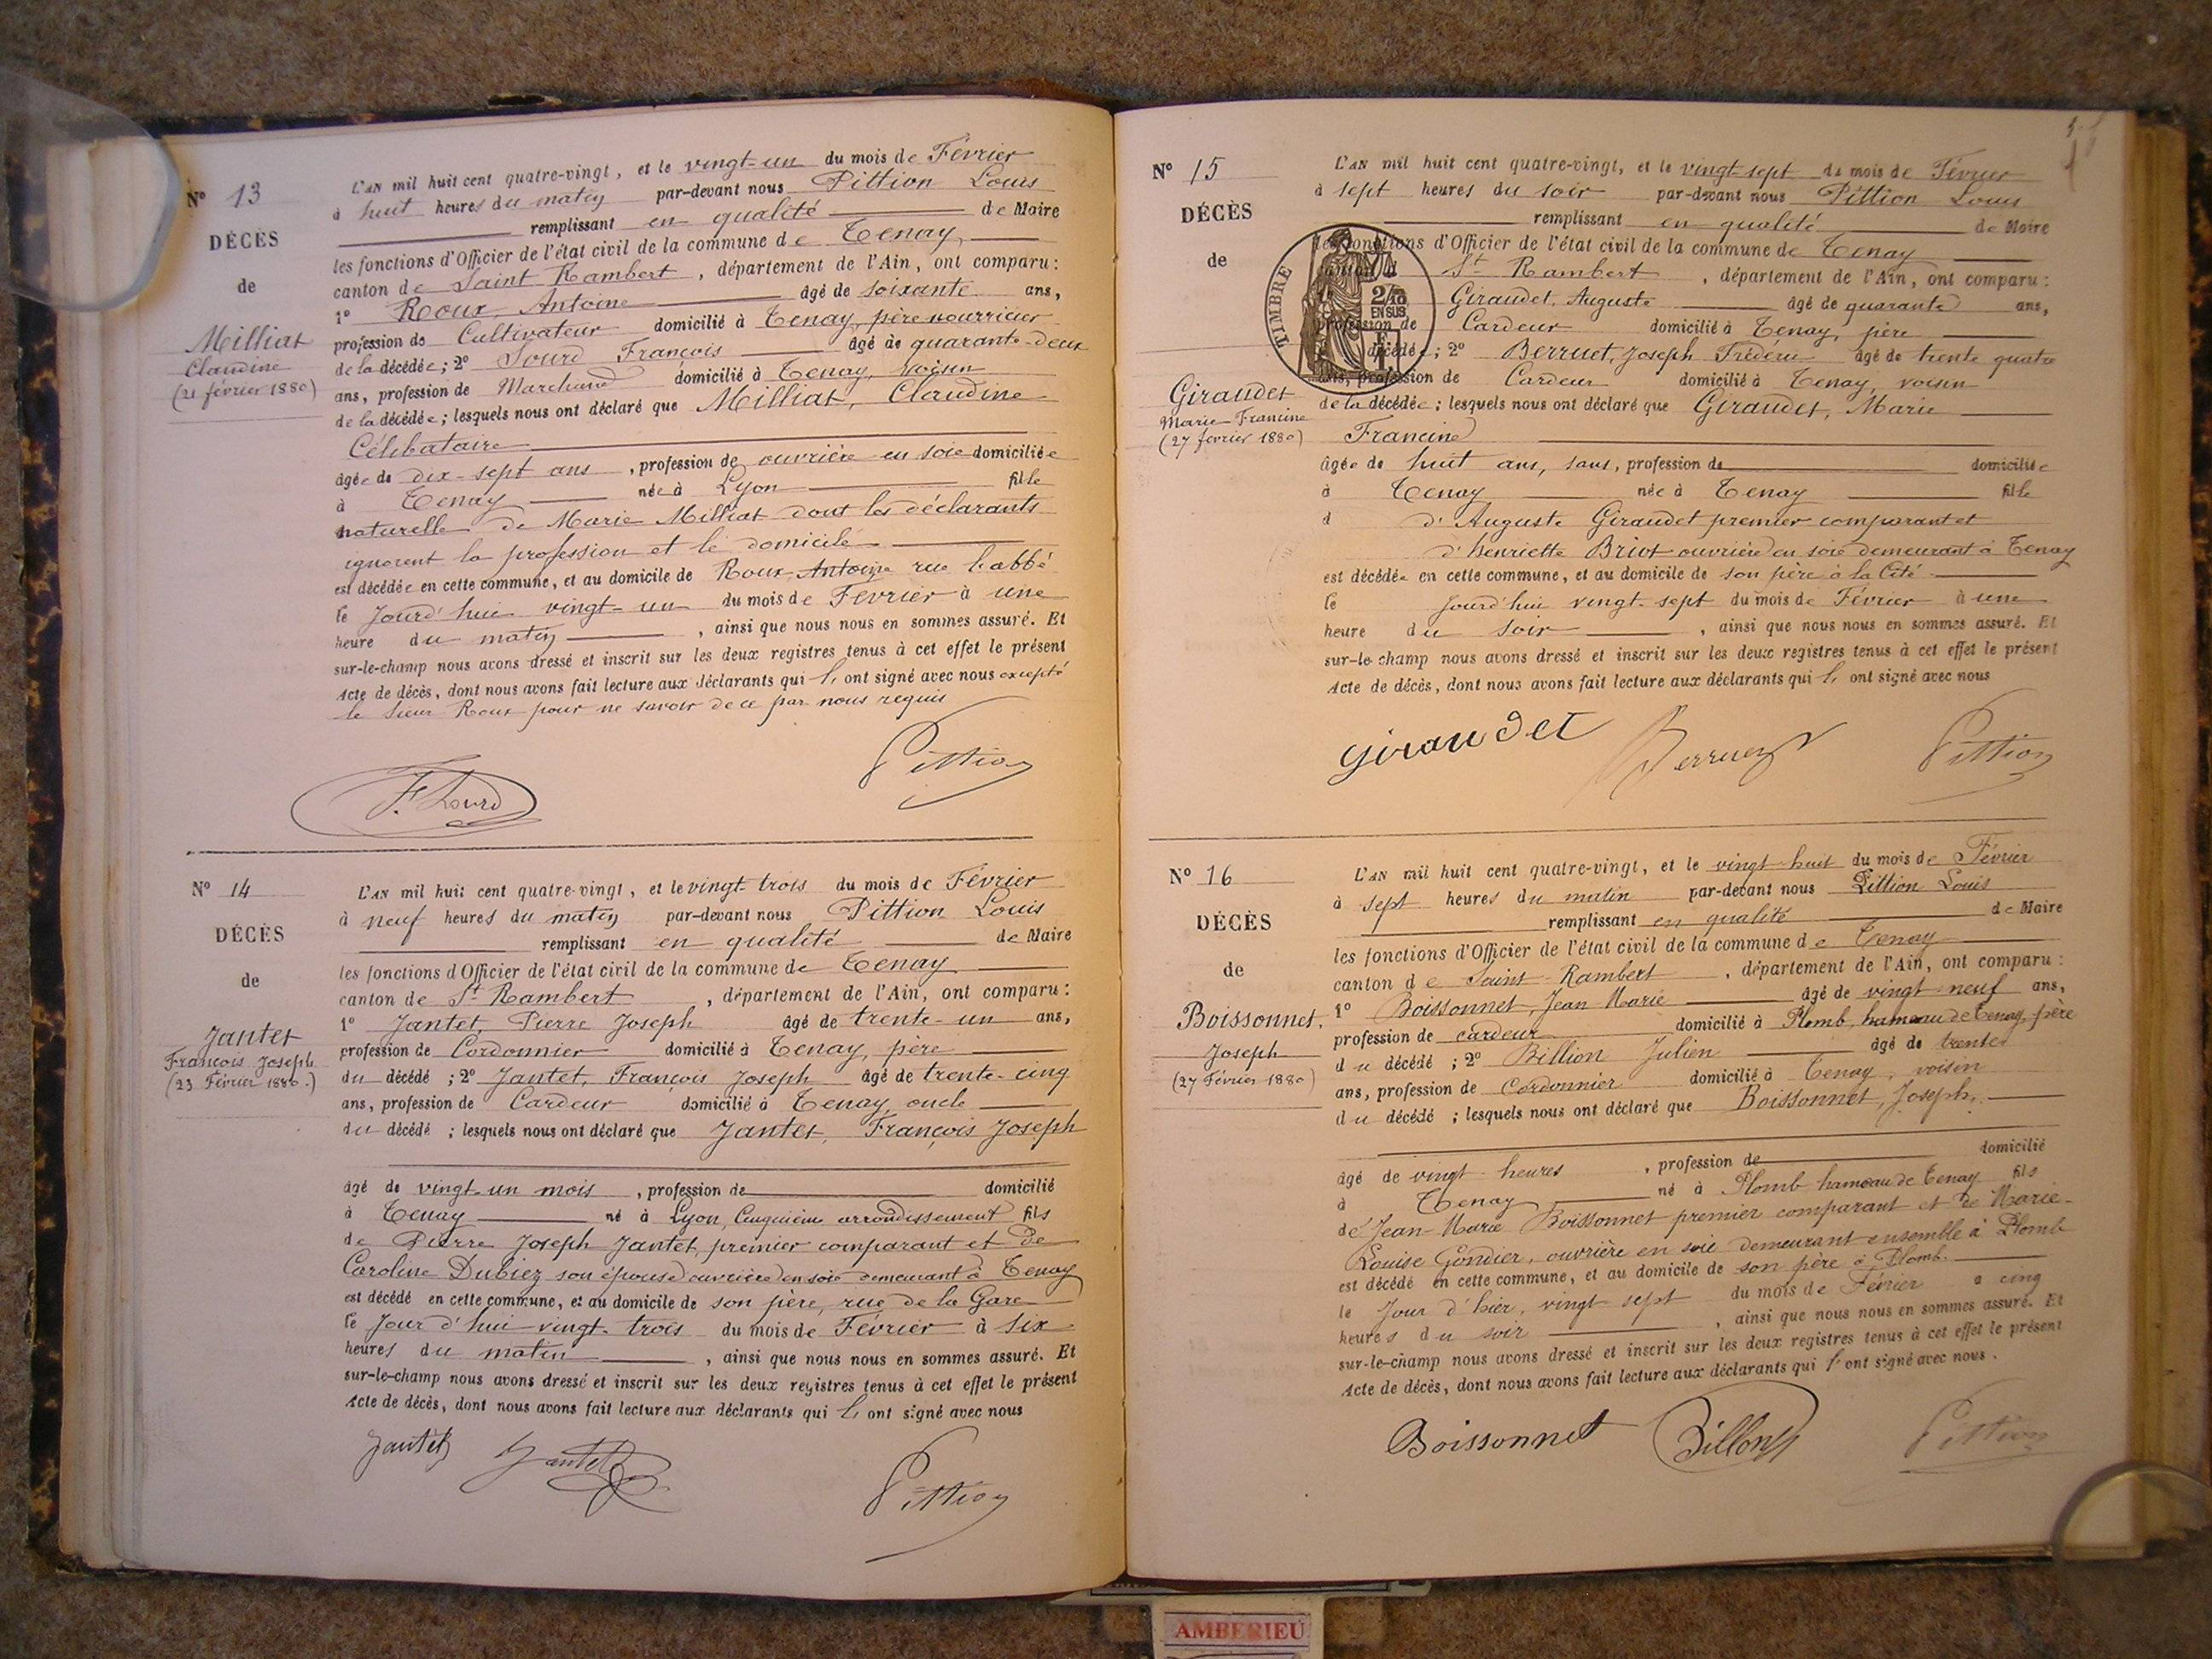 N° 13
DÉCÈS
de
Milliat
Claudine
(21 février 1880)
L'AN mil huit cent quatre-vingt, et le vingt-un du mois de Février
à huit heures du matin par-devant nous Pittion Louis
remplissant en qualité de Maire
les fonctions d'Officier de l'état civil de la commune de Tenay,
canton de Saint Rambert, département de l'Ain, ont comparu :
1° Roux, Antoine âgé de soixante ans,
profession de Cultivateur domicilié à Tenay, père nourricier
de la décédée ; 2° Sourd François âgé de quarante-deux
ans, profession de Marchand domicilié à Tenay, voisin
de la décédée ; lesquels nous ont déclaré que Milliat, Claudine
Célibataire
âgée de dix-sept ans, profession de ouvrière en soie domiciliée
à Tenay née à Lyon fille
naturelle de Marie Milliat dont les déclarants
ignorent la profession et le domicile
est décédée en cette commune, et au domicile de Roux, Antoine rue l'abbé
le jourd'hui vingt-un du mois de Février à une
heure du matin, ainsi que nous nous en sommes assuré. Et
sur-le-champ nous avons dressé et inscrit sur les deux registres tenus à cet effet le présent
Acte de décès, dont nous avons fait lecture aux déclarants qui l'ont signé avec nous excepté
le sieur Roux pour ne savoir de ce par nous requis
F. Sourd
Pittion
N° 14
DÉCÈS
de
Jantet
François Joseph
(23 Février 1880.)
L'AN mil huit cent quatre-vingt, et le vingt-trois du mois de Février
à neuf heures du matin par-devant nous Pittion Louis
remplissant en qualité de Maire
les fonctions d'Officier de l'état civil de la commune de Tenay
canton de St Rambert, département de l'Ain, ont comparu :
1° Jantet, Pierre Joseph âgé de trente-un ans,
profession de Cordonnier domicilié à Tenay, père
du décédé ; 2° Jantet, François Joseph âgé de trente-cinq
ans, profession de Cardeur domicilié à Tenay oncle
du décédé ; lesquels nous ont déclaré que Jantet, François Joseph
âgé de vingt-un mois, profession de domicilié
à Tenay né à Lyon, Cinquième arrondissement fils
de Pierre Joseph Jantet, premier comparant et de
Caroline Dubiez son épouse ouvrière en soie demeurant à Tenay
est décédé en cette commune, et au domicile de son père, rue de la Gare
le jour d'hui vingt-trois du mois de Février à six
heures du matin, ainsi que nous nous en sommes assuré. Et
sur-le-champ nous avons dressé et inscrit sur les deux registres tenus à cet effet le présent
Acte de décès, dont nous avons fait lecture aux déclarants qui l'ont signé avec nous
Jantet Jantet
Pittion
N° 15
DÉCÈS
de
Giraudet
Marie-Francine
(27 février 1880)
TIMBRE
2/10
EN SUS
L'AN mil huit cent quatre-vingt, et le vingt-sept du mois de Février
à sept heures du soir par-devant nous Pittion Louis
remplissant en qualité de Maire
les fonctions d'Officier de l'état civil de la commune de Tenay
canton d St Rambert, département de l'Ain, ont comparu :
Giraudet, Auguste âgé de quarante ans,
profession de Cardeur domicilié à Tenay, père
décédée ; 2° Berruet, Joseph Frédéric âgé de trente quatre
ans, profession de Cardeur domicilié à Tenay, voisin
de la décédée ; lesquels nous ont déclaré que Giraudet, Marie
Francine
âgée de huit ans, sans, profession de domiciliée
à Tenay née à Tenay fille
d d'Auguste Giraudet premier comparant et
d'henriette Briot ouvrière en soie demeurant à Tenay
est décédée en cette commune, et au domicile de son père à la Cité
le jourd'hui vingt-sept du mois de Février à une
heure du soir, ainsi que nous nous en sommes assuré. Et
sur-le-champ nous avons dressé et inscrit sur les deux registres tenus à cet effet le présent
Acte de décès, dont nous avons fait lecture aux déclarants qui l'ont signé avec nous
Giraudet Berruet Pittion
N° 16
DÉCÈS
de
Boissonnet.
Joseph
(27 Février 1880)
L'AN mil huit cent quatre-vingt, et le vingt-huit du mois de Février
à sept heures du matin par-devant nous Pittion Louis
remplissant en qualité de Maire
les fonctions d'Officier de l'état civil de la commune de Tenay
canton de Saint-Rambert, département de l'Ain, ont comparu :
1° Boissonnet, Jean Marie âgé de vingt-neuf ans,
profession de cardeur domicilié à Plomb, hameau de Tenay, père
du décédé ; 2° Billion Julien âgé de trente
ans, profession de Cordonnier domicilié à Tenay, voisin
du décédé ; lesquels nous ont déclaré que Boissonnet, Joseph,
âgé de vingt heures, profession de domicilié
à Tenay né à Plomb hameau de Tenay fils
de Jean-Marie Boissonnet premier comparant et de Marie-
Louise Gondier, ouvrière en soie demeurant ensemble à Plomb
est décédé en cette commune, et au domicile de son père à Plomb.
le Jour d'hier, vingt sept du mois de Février à cinq
heures du soir, ainsi que nous nous en sommes assuré. Et
sur-le-champ nous avons dressé et inscrit sur les deux registres tenus à cet effet le présent
Acte de décès, dont nous avons fait lecture aux déclarants qui l'ont signé avec nous.
Boissonnet Billion Pittion
AMBERIEU